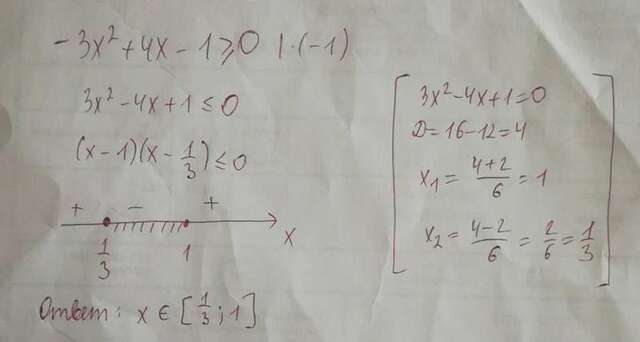 -3x²+4x-1⩾0 |·(-1)
3x²-4x+1≤0
(x-1)(x-1/3)≤0
+ - +
1/3 1 x
Ответ: x ∈ [1/3; 1]
3x²-4x+1=0
D=16-12=4
x₁= (4+2)/6 = 1
x₂= (4-2)/6 = 2/6 = 1/3